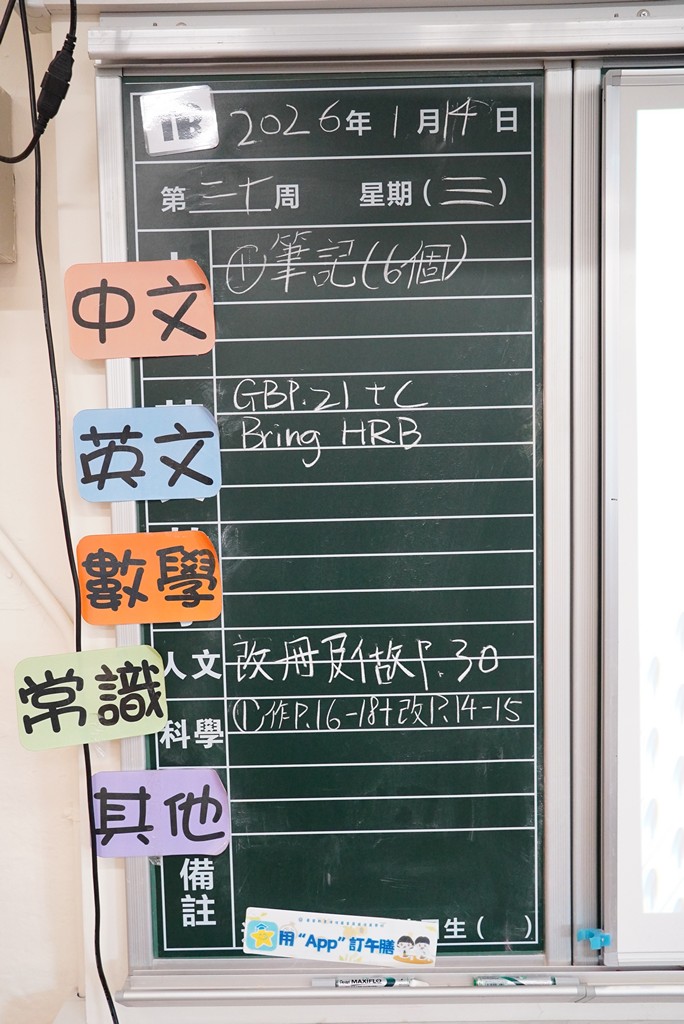 2026年1月14日
第二十周 星期(三)
中文
①筆記(6個)
英文
GBP.21+C
Bring HRB
數學
常識
人文 改冊及做P.30
科學 ①作P.16-18+改P.14-15
其他
備註
生( )
用“App”訂午膳
Pentel MAXIFLO